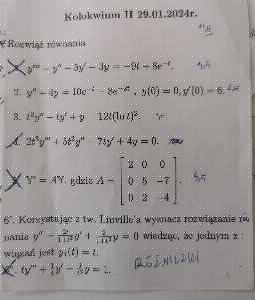 Kolokwium II 29.01.2024r.
Rozwiąż równania
y''' - y'' - 5y' - 3y = -9t + 8e^{-t}.
2. y'' - 4y = 10e^{-t} - 8e^{-2t}, y(0) = 0, y'(0) = 6.
3. t²y'' - ty' + y = 12t(ln t)².
4. 2t³y''' + 5t²y'' - 7ty' + 4y = 0.
Y' = AY, gdzie A = [2 0 0
0 5 -7
0 2 -4].
6'. Korzystając z tw. Liuville'a wyznacz rozwiązanie
nania y'' - y' + y = 0 wiedząc, że jednym z
wiązań jest y₁(t) = t.
RÓŻNICZKI